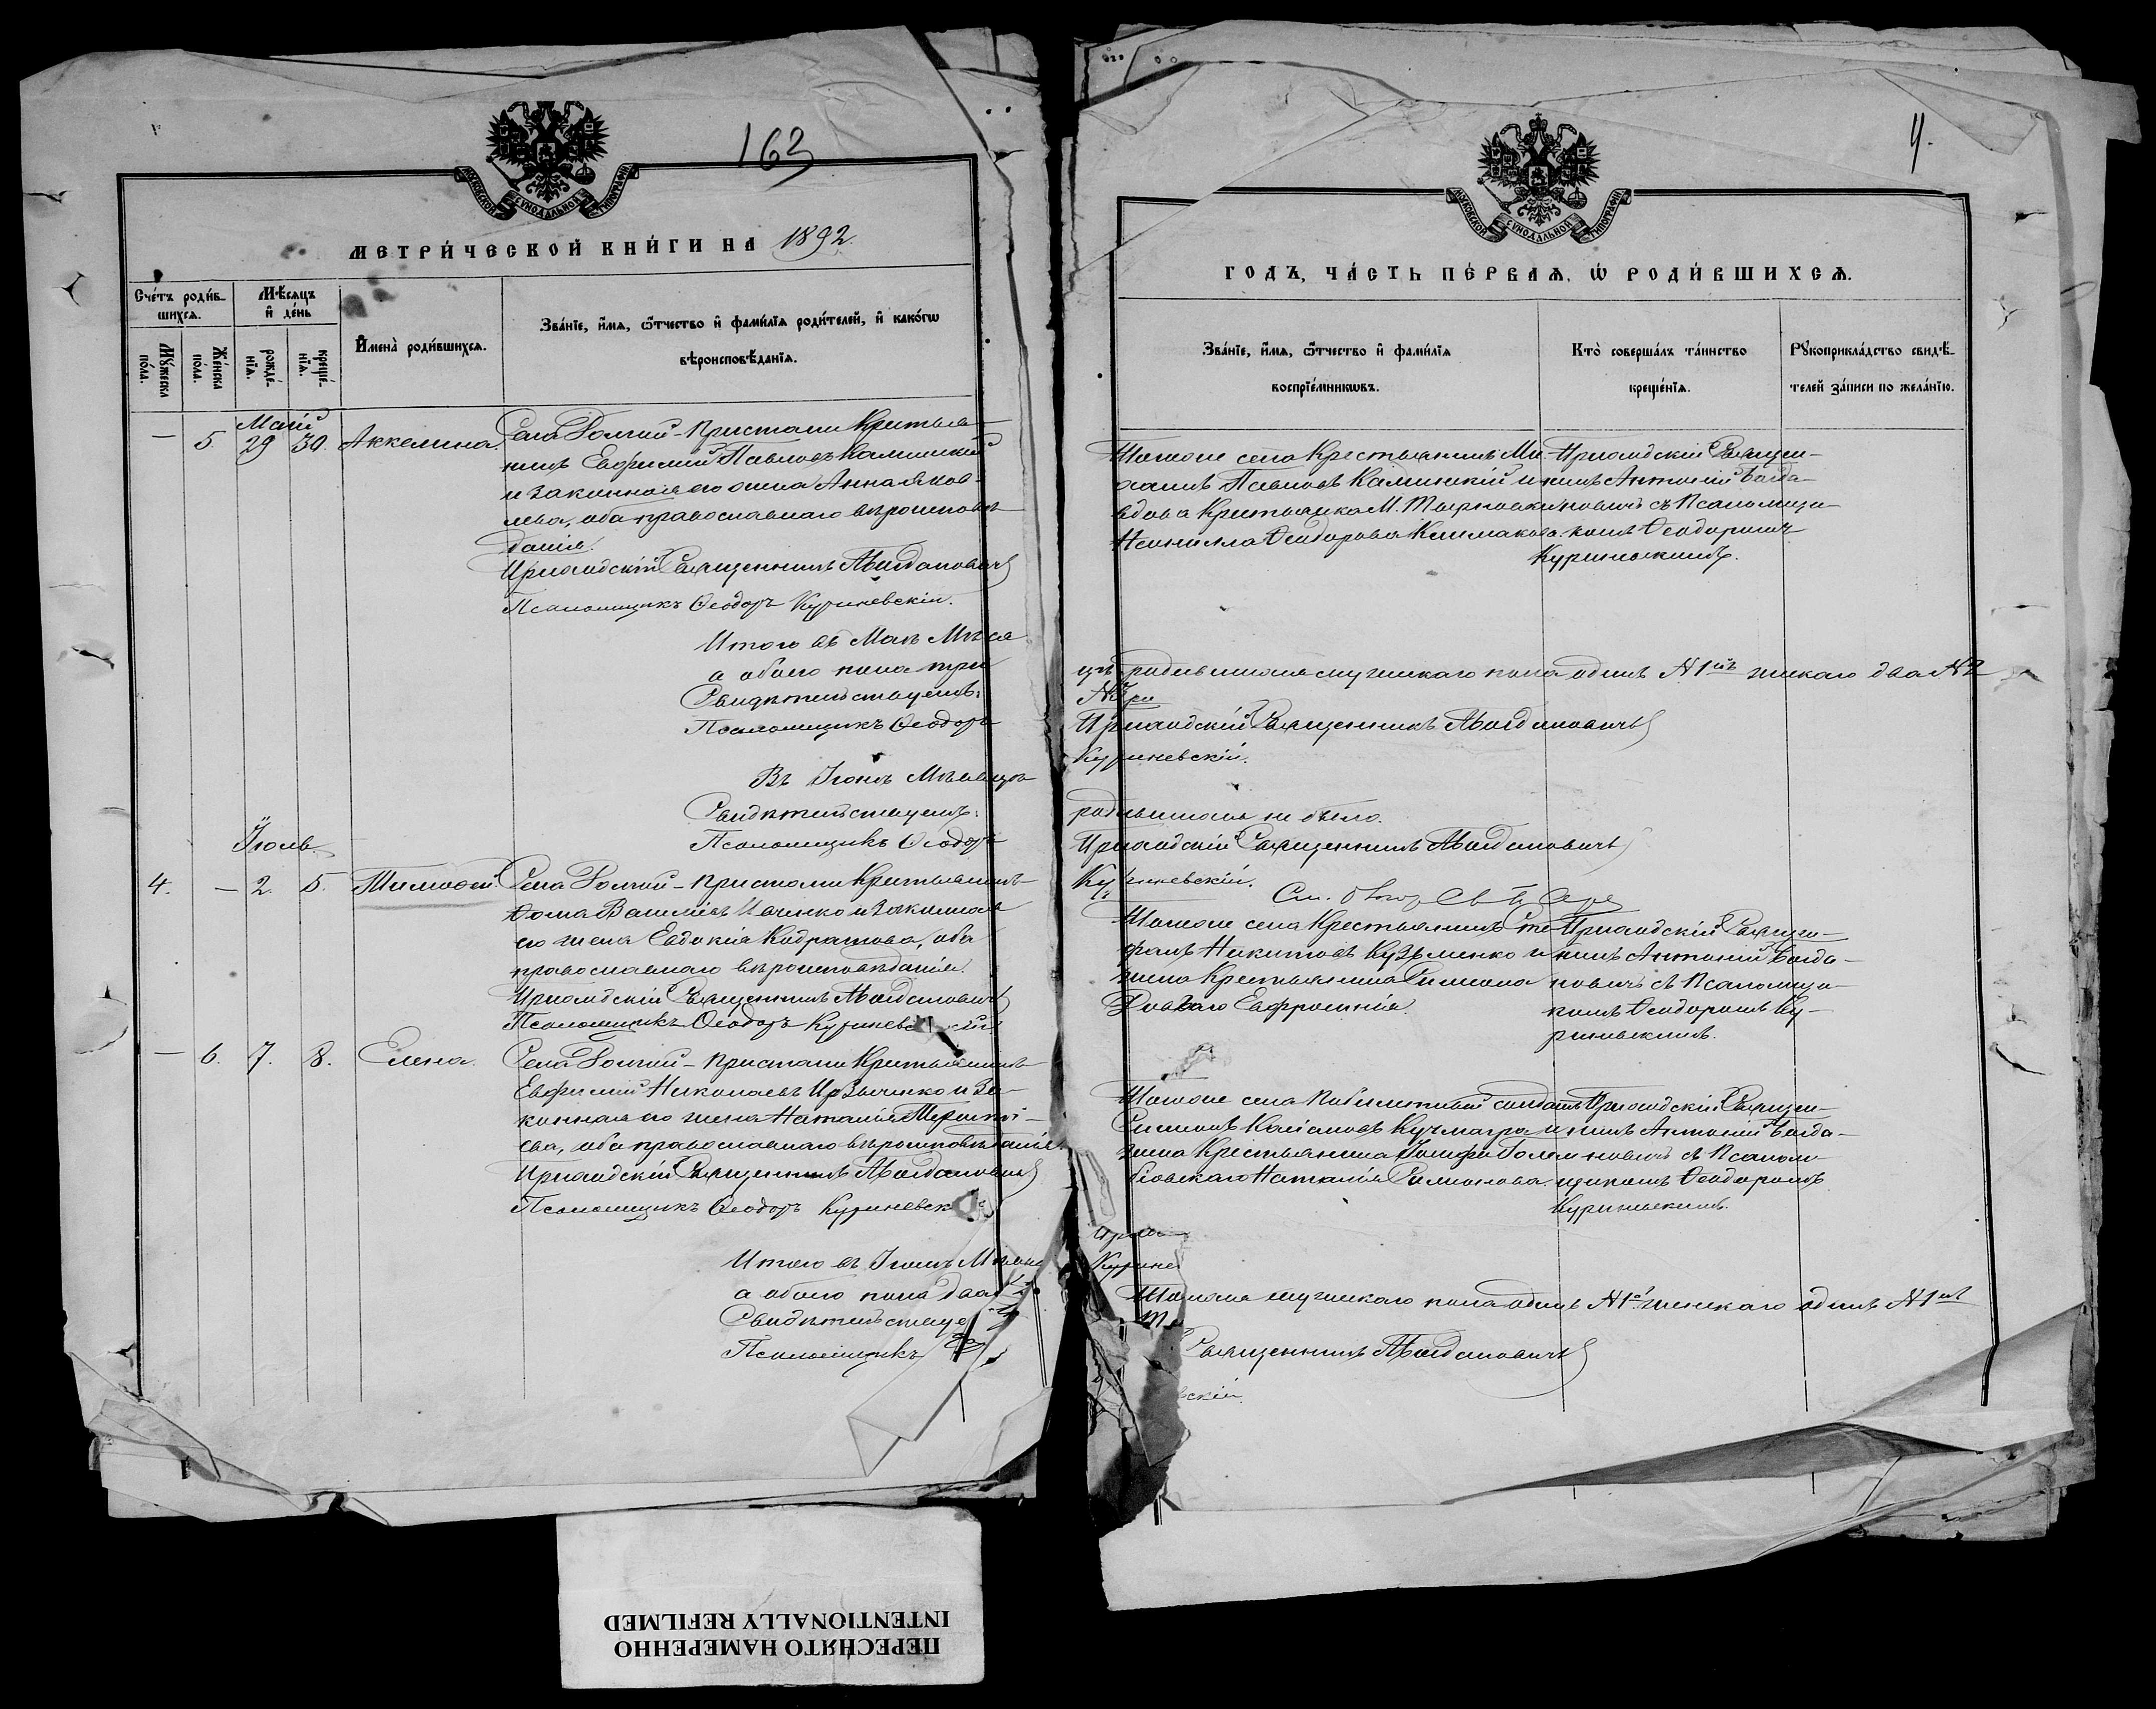 163
МОСКОВСКОЙ СѴНОДАЛЬНОЙ ТИПОГРАФІИ
МЕТРИ́ЧЕСКОЙ КНИ́ГИ НА 1892.
Сче́тъ роди́в-
шихсѧ.
Мѣ́сѧцъ
и҆ де́нь
И҆мена̀ роди́вшихсѧ.
Зва́нїе, и҆́мѧ, ѻ҆́тчество и҆ фами́лїѧ роди́телей, и҆ како́гѡ
вѣроисповѣ́данїѧ.
Мꙋ́жеска
по́ла.
Же́нска
по́ла.
рожде́-
нїѧ.
креще́-
нїѧ.
Май
— 5. 29 30. Аккелина. Села Долгой-Пристани Крестья-
нинъ Евфимій Павловъ Калинскій
и законная его жена Анна Яков-
лева, оба православнаго вѣроисповѣ-
данія.
Приходскій Священникъ А Богдановичъ
Псаломщикъ Ѳеодоръ Куриневскій.
Итого въ Маѣ Мѣся
а обоего пола три
Свидѣтельствуемъ:
Псаломщикъ Ѳеодоръ
Въ Іюнѣ Мѣсяцѣ
Свидѣтельствуемъ:
Псаломщикъ Ѳеодоръ
Іюль
4. — 2. 5. Тимоѳей Села Долгой-Пристани Крестьянинъ
Ѳома Василіевъ Ивченко и Законная
его жена Евдокія Кодратова, оба
православнаго вѣроисповѣданія.
Приходскій Священникъ А Богдановичъ
Псаломщикъ Ѳеодоръ Куриневскій
— 6. 7. 8. Елена. Села Долгой-Пристани Крестьянинъ
Евфимій Николаевъ и За-
конная его жена Наталія
ева, оба православнаго вѣроисповѣданія.
Приходскій Священникъ А Богдановичъ
Псаломщикъ Ѳеодоръ Куриневск
Итого въ Іюлѣ Мѣсяц
а обоего пола два
Свидѣтельствуе
Псаломщикъ
4.
МОСКОВСКОЙ СѴНОДАЛЬНОЙ ТИПОГРАФІИ
ГОДЪ, ЧА́СТЬ ПЕ́РВАѦ, Ѡ҆ РОДИ́ВШИХСѦ.
Зва́нїе, и҆́мѧ, ѻ҆́тчество и҆ фами́лїѧ
воспрїе́мникѡвъ.
Кто̀ соверша́лъ та́инство
креще́нїѧ.
Рꙋкоприкла́дство свидѣ́-
телей за́писи по жела́нїю.
Того же села Крестьянинъ Ми-
хаилъ Павловъ Калинскій и
вдова Крестьянка М.
Неонилла Ѳеодорова Климакова.
Приходскій Священ-
никъ Антоній Богда-
новичъ съ Псаломщи-
комъ Ѳеодоромъ
Куриневскимъ.
цѣ родившихся мужескаго пола одинъ №1й женскаго два №2
№3 ри
Приходскій Священникъ А Богдановичъ
Куриневскій.
родившихся не было.
Приходскій Священникъ А Богдановичъ
Куриневскій.
Того же села Крестьянинъ Сте-
фанъ Никитовъ Кузьменко и
жена Крестьянина Симеона
Евфросинія.
Приходскій Священ-
никъ Антоній Богда-
новичъ съ Псаломщи-
комъ Ѳеодоромъ Ку-
риневскимъ.
Того же села билетный солдатъ
Симеонъ и
жена Крестьянина Іосифа Голем-
біовскаго Наталія Симонова.
Приходскій Священ-
никъ Антоній Богда-
новичъ съ Псалом-
щикомъ Ѳеодоромъ
Куриневскимъ.
Курине
мужескаго пола одинъ №1й женскаго одинъ №1й
Священникъ А Богдановичъ
вскій.
ПЕРЕСНЯТО НАМЕРЕННО
INTENTIONALLY REFILMED